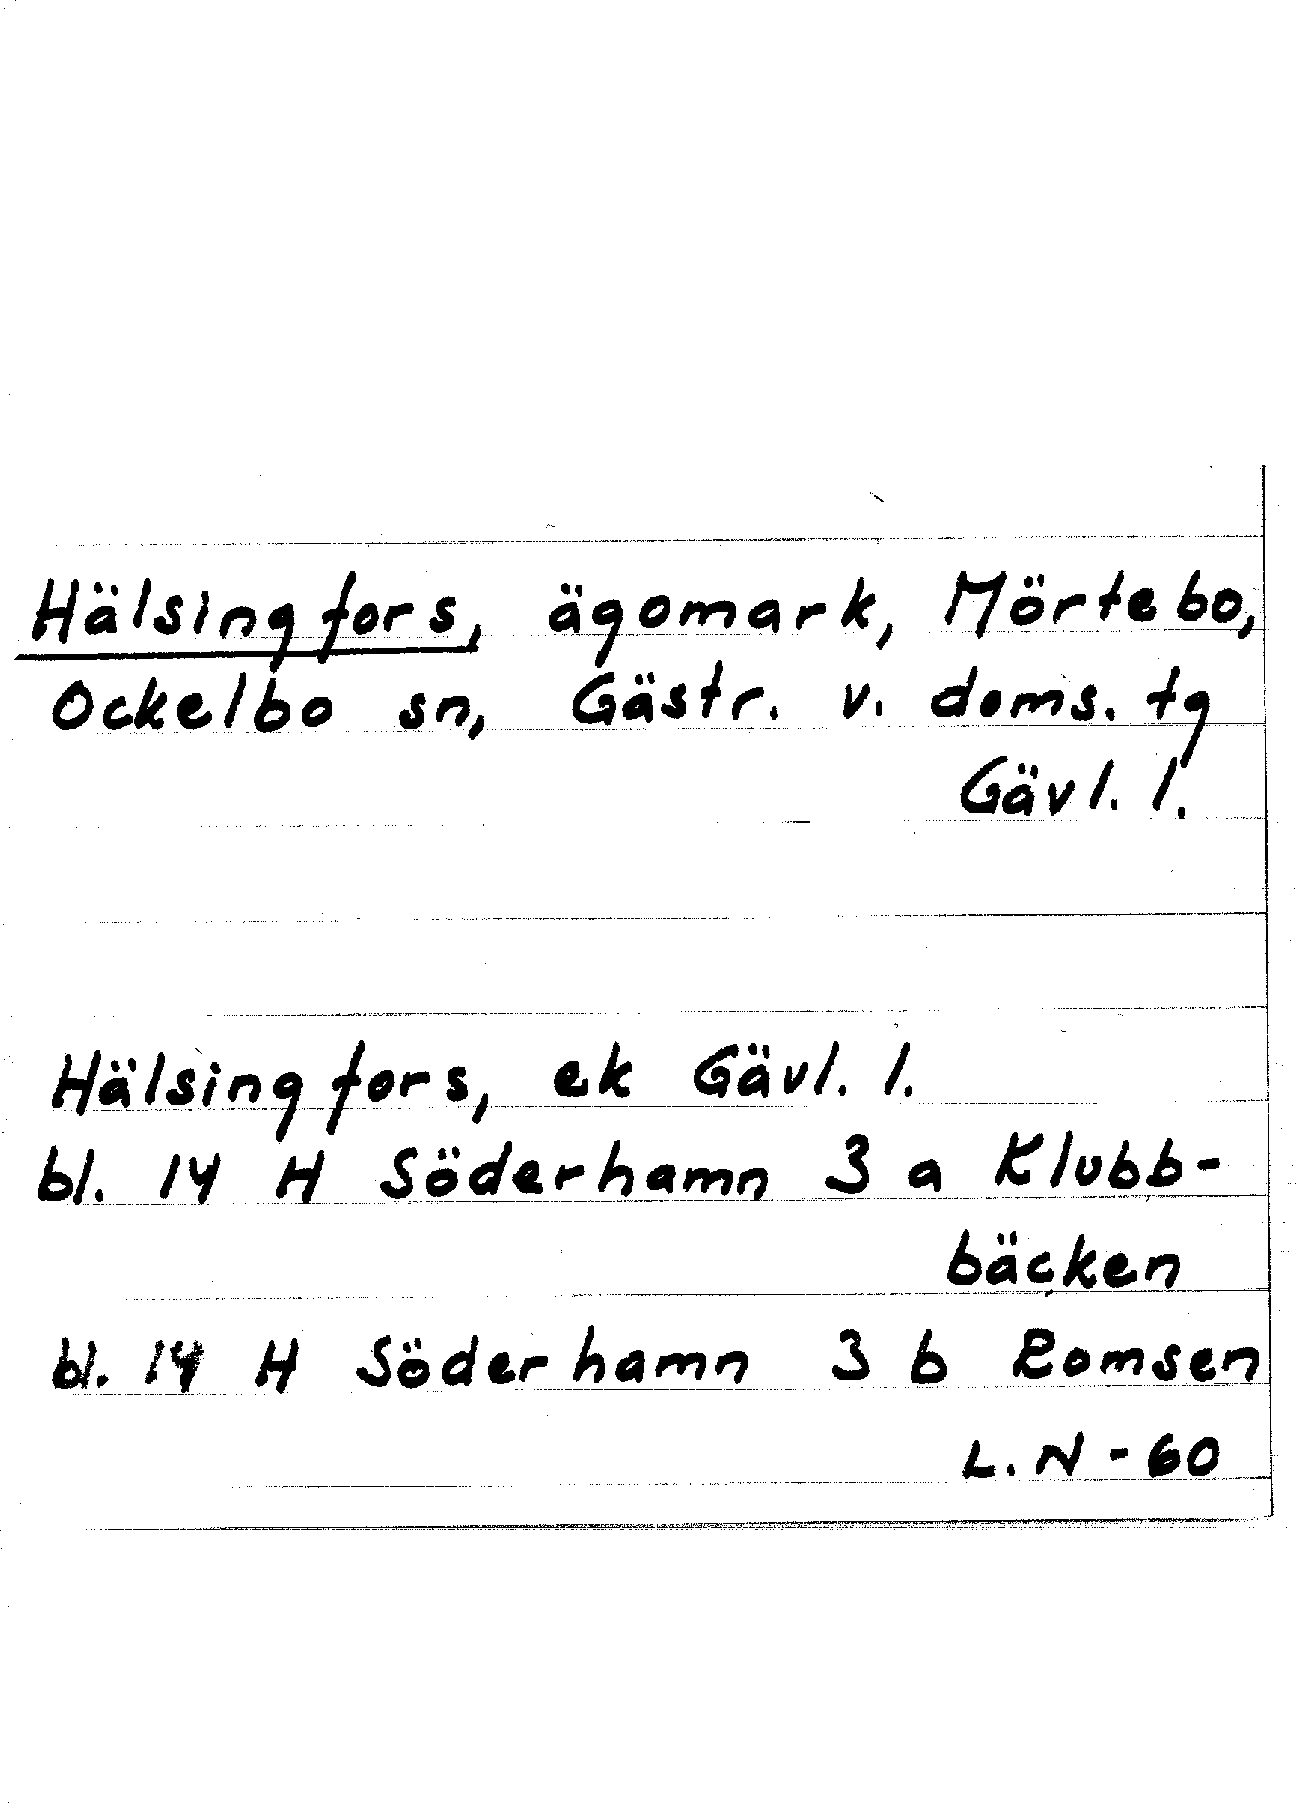 Hälsingfors, ägomark, Mörtebo,
Ockelbo sn, Gästr. v. doms. tg
Gävl. l.
Hälsingfors, ek Gävl. l.
bl. 14 H Söderhamn 3 a Klubb-
bäcken
bl. 14 H Söderhamn 3 b Romsen
L. N - 60